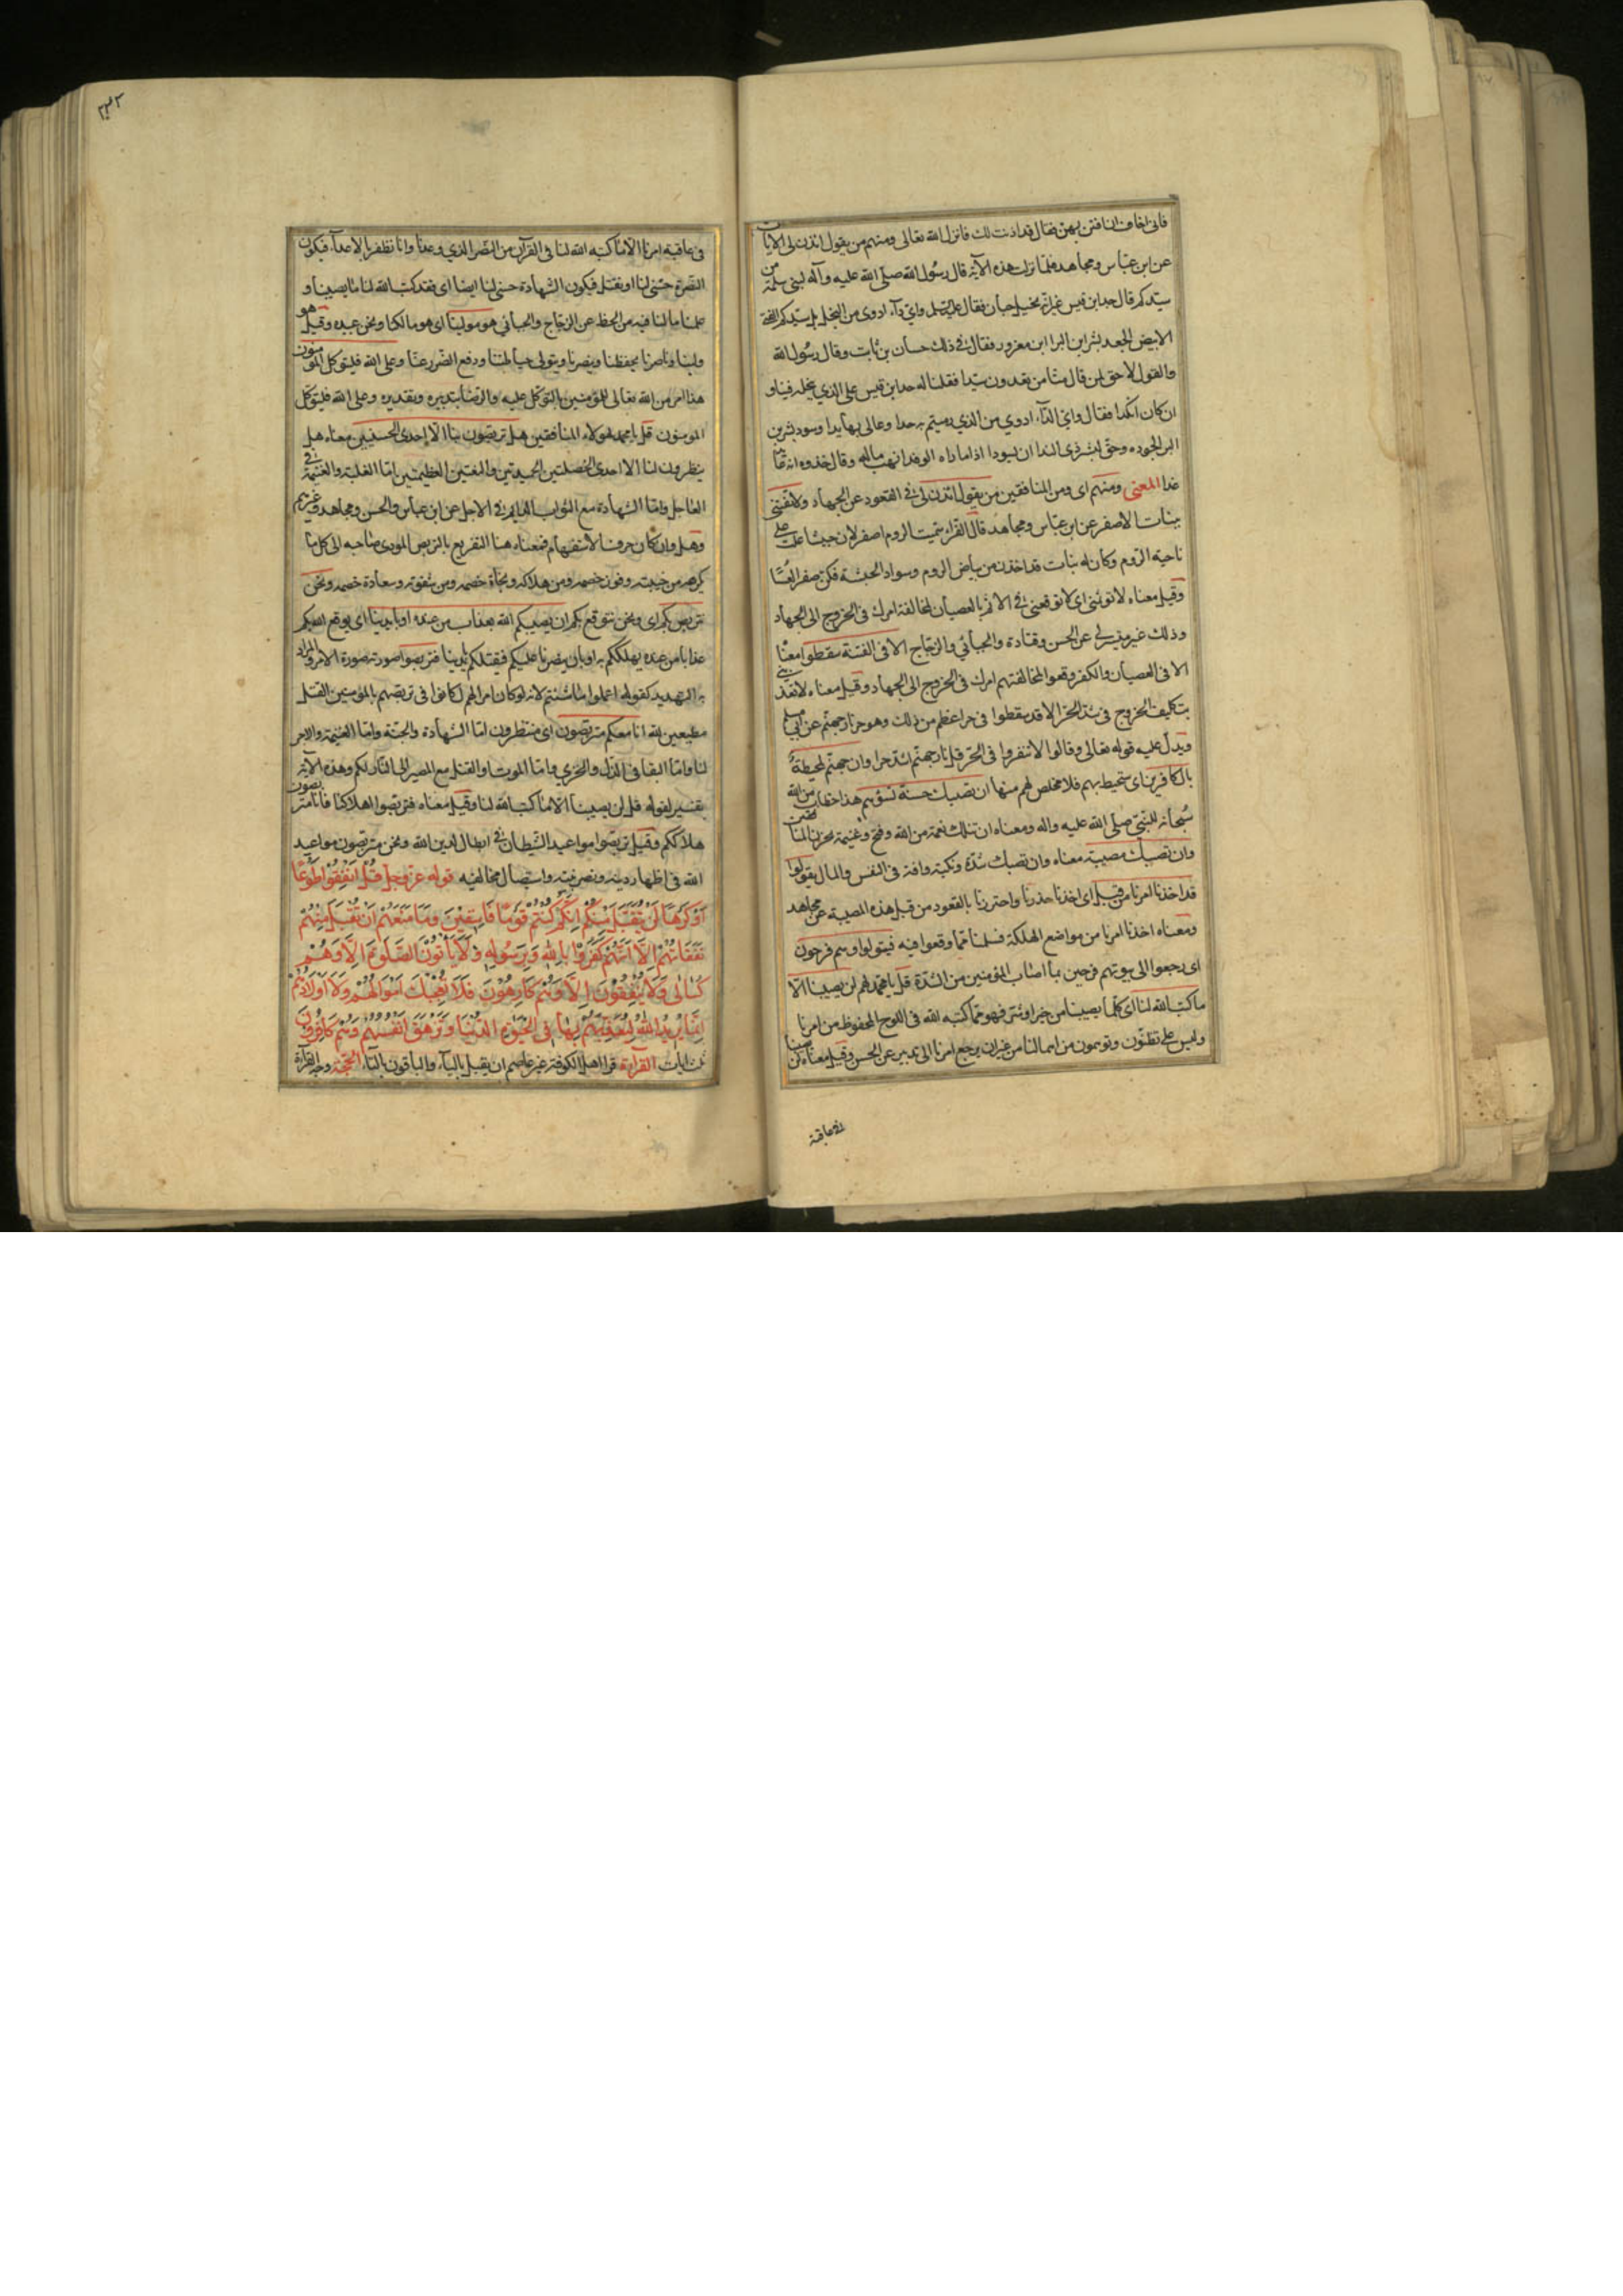 فانی اخاف ان افتتن بهن فقال قد اذنت لك فانزل الله تعالی ومنهم من یقول ائذن لی الآیات
عن ابن عباس ومجاهد فلما نزلت هذه الآیة قال رسول الله صلی الله علیه وآله لبنی سلمة من
سیدكم قال جد ابن قیس غیر انه بخیل جبان فقال علیه السلم وای داء ادوی من البخل بل سیدكم الفتی
الابیض الجعد بشر ابن البرا ابن معرور فقال فی ذلك حسان بن ثابت وقال رسول الله
والقول لاحق لمن قال منا من تعدون سیدا فقلنا له جد ابن قیس علی الذی نبخله فینا و
ان كان انكدا فقال وای الداء ادوی من الذی رمیتم به جدا وعالی بها یدا وسود بشر بن
البرا لجوده وحق لبشر ذی الندا ان یسودا اذا ما اتاه الوفد انهب ماله وقال خذوه انه عائد
غدا المعنی ومنهم ای ومن المنافقین من یقول ائذن لی فی القعود عن الجهاد ولا تفتنی
ببنات الاصفر عن ابن عباس ومجاهد قال الفراء سمیت الروم اصفر لان حبشا غلب علی
ناحیة الروم وكان له بنات قد اخذن من بیاض الروم وسواد الحبشة فكن صفرا لعسا
وقیل معناه لا تؤثمنی ای لا توقعنی فی الاثم بالعصیان لمخالفة امرك فی الخروج الی الجهاد
وذلك غیر متیسر لی عن الحسن وقتادة والجبائی والزجاج الا فی الفتنة سقطوا معناه
الا فی العصیان والكفر وقعوا لمخالفتهم امرك فی الخروج الی الجهاد وقیل معناه لا تعذبنی
بتكلیف الخروج فی شدة الحر الا قد سقطوا فی حر اعظم من ذلك وهو حر نار جهنم عن ابی مسلم
ویدل علیه قوله تعالی وقالوا لا تنفروا فی الحر قل نار جهنم اشد حرا وان جهنم لمحیطة
بالكافرین ای ستحیط بهم فلا مخلص لهم منها ان تصبك حسنة تسؤهم هذا خطاب من الله
سبحانه للنبی صلی الله علیه واله ومعناه ان تنلك نعمة من الله وفتح وغنیمة یحزن المنافقین
وان تصبك مصیبة معناه وان تصبك شدة ونكبة وافة فی النفس والمال یقولوا
قد اخذنا امرنا من قبل ای اخذنا حذرنا واحترزنا بالقعود من قبل هذه المصیبة عن مجاهد
ومعناه اخذنا امرنا من مواضع الهلكة فسلمنا مما وقعوا فیه فیتولوا وهم فرحون
ای رجعوا الی بیوتهم فرحین بما اصاب المؤمنین من الشدة قل یا محمد لهم لن یصیبنا الا
ما كتب الله لنا ای كل ما یصیبنا من خیر او شر فهو مما كتبه الله فی اللوح المحفوظ من امرنا
ولیس علی تظنون وتوهمون من اهمالنا من غیر ان یرجع امرنا الی تدبیر عن الحسن وقیل معناه لن یصیبنا
فی عاقبة
فی عاقبة امرنا الا ما كتبه الله لنا فی القرآن من النصر الذی وعدنا وانا نظفر بالاعداء فتكون
النصرة حسنی لنا او نقتل فیكون الشهادة حسنی لنا ایضا ای فقد كتب الله لنا ما یصیبنا و
علمنا ما لنا فیه من الحظ عن الزجاج والجبائی هو مولینا ای هو مالكنا ونحن عبیده وقیل هو
ولینا وناصرنا یحفظنا وینصرنا ویتولی حیاطتنا ودفع الضرر عنا وعلی الله فلیتوكل المؤمنون
هذا امر من الله تعالی للمؤمنین بالتوكل علیه والرضا بتدبیره وتقدیره وعلی الله فلیتوكل
المومنون قل یا محمد لهولاء المنافقین هل تربصون بنا الا احدی الحسنیین معناه هل
ینظرون لنا الا احدی الخصلتین الحمیدتین والنعمتین العظیمتین اما الغلبة والغنیمة فی
العاجل واما الشهادة مع الثواب الدایم فی الاجل عن ابن عباس والحسن ومجاهد وغیرهم
وهل وان كان حرف الاستفهام فمعناه هنا التقریع بالتربص المودی صاحبه الی كل ما
كرهه من خیبته وفوز خصمه ومن هلاكه ونجاة خصمه ومن شقوته وسعادة خصمه ونحن
نتربص بكم ای ونحن نتوقع بكم ان یصیبكم الله بعذاب من عنده او بایدینا ای یوقع الله بكم
عذابا من عنده یهلككم به او بان ینصرنا علیكم فیقتلكم بایدینا فتربصوا صورته صورة الامر والمراد
به التهدید كقوله اعملوا ما شئتم لانه لو كان امرا لهم لكانوا فی تربصهم بالمؤمنین القتل
مطیعین لله انا معكم متربصون ای منتظرون اما الشهادة والجنة واما الغنیمة والاجر
لنا واما البقا فی الذل والخزی واما الموت او القتل مع المصیر الی النار لكم وهذه الآیة
تفسیر لقوله قل لن یصیبنا الا ما كتب الله لنا وقیل معناه فتربصوا اهلاكنا فانا متربصون
هلاككم وقیل تربصوا مواعید الشیطان فی ابطال دین الله ونحن متربصون مواعید
الله فی اظهار دینه ونصر نبیه واستیصال مخالفیه قوله عز وجل قُلْ اَنْفِقُوا طَوْعًا
اَوْ كَرْهًا لَنْ یُتَقَبَّلَ مِنْكُمْ اِنَّكُمْ كُنْتُمْ قَوْمًا فَاسِقِینَ وَمَا مَنَعَهُمْ اَنْ تُقْبَلَ مِنْهُمْ
نَفَقَاتُهُمْ اِلَّا اَنَّهُمْ كَفَرُوا بِاللهِ وَبِرَسُولِهِ وَلَا یَأْتُونَ الصَّلٰوةَ اِلَّا وَهُمْ
كُسَالٰی وَلَا یُنْفِقُونَ اِلَّا وَهُمْ كَارِهُونَ فَلَا تُعْجِبْكَ اَمْوَالُهُمْ وَلَا اَوْلَادُهُمْ
اِنَّمَا یُرِیدُ اللهُ لِیُعَذِّبَهُمْ بِهَا فِی الْحَیٰوةِ الدُّنْیَا وَتَزْهَقَ اَنْفُسُهُمْ وَهُمْ كَافِرُونَ
ثلث ایات القرآءة قرا اهل الكوفة غیر عاصم ان یقبل بالیاء والباقون بالتاء الحجة وجه القرآءة